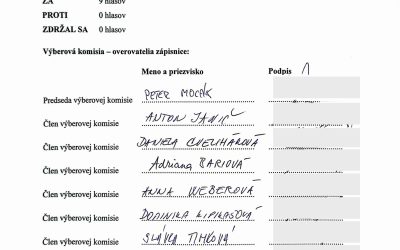 ZA 9 hlasov
PROTI 0 hlasov
ZDRŽAL SA 0 hlasov
Výberová komisia – overovatelia zápisnice:
Meno a priezvisko Podpis
Predseda výberovej komisie PETER MOCÁK
Člen výberovej komisie ANTON JANIČ
Člen výberovej komisie DANIELA CVELIHÁROVÁ
Člen výberovej komisie Adriana BARIOVÁ
Člen výberovej komisie ANNA WEBEROVÁ
Člen výberovej komisie DOMINIKA
Člen výberovej komisie SLÁVKA